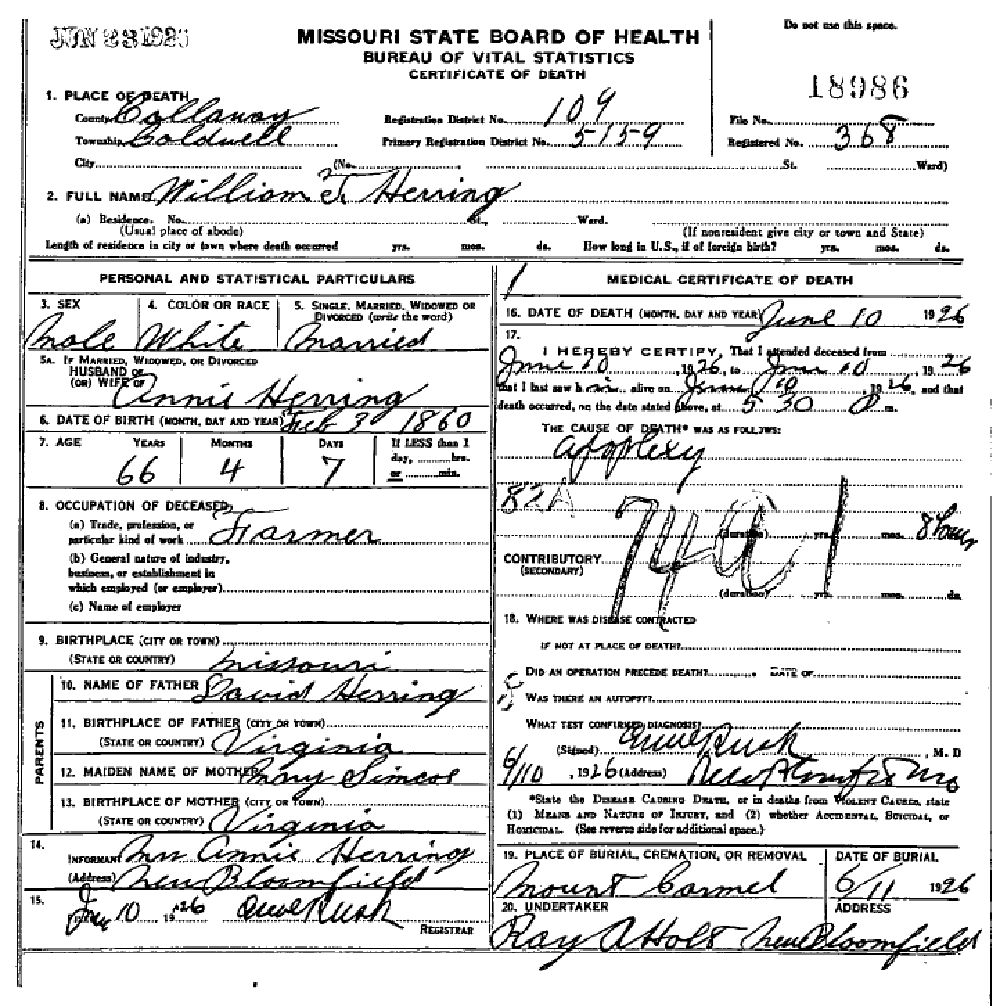 JUN 23 1926
Do not use this space.
MISSOURI STATE BOARD OF HEALTH
BUREAU OF VITAL STATISTICS
CERTIFICATE OF DEATH
18986
1. PLACE OF DEATH
County Callaway Registration District No. 109 File No.
Township Coldwell Primary Registration District No. 5159 Registered No. 368
City (No. St. Ward)
2. FULL NAME William T. Herring
(a) Residence. No. St., Ward.
(Usual place of abode) (If nonresident give city or town and State)
Length of residence in city or town where death occurred yrs. mos. ds. How long in U.S., if of foreign birth? yrs. mos. ds.
PERSONAL AND STATISTICAL PARTICULARS
3. SEX 4. COLOR OR RACE 5. SINGLE, MARRIED, WIDOWED OR
DIVORCED (write the word)
Male White Married
5A. IF MARRIED, WIDOWED, OR DIVORCED
HUSBAND OF
(OR) WIFE OF Annie Herring
6. DATE OF BIRTH (MONTH, DAY AND YEAR) Feb 3 1860
7. AGE YEARS MONTHS DAYS If LESS than 1
day, hrs.
66 4 7 or min.
8. OCCUPATION OF DECEASED
(a) Trade, profession, or
particular kind of work Farmer
(b) General nature of industry,
business, or establishment in
which employed (or employer)
(c) Name of employer
9. BIRTHPLACE (CITY OR TOWN)
(STATE OR COUNTRY) Missouri
PARENTS
10. NAME OF FATHER David Herring
11. BIRTHPLACE OF FATHER (CITY OR TOWN)
(STATE OR COUNTRY) Virginia
12. MAIDEN NAME OF MOTHER Mary Simcoe
13. BIRTHPLACE OF MOTHER (CITY OR TOWN)
(STATE OR COUNTRY) Virginia
14.
INFORMANT Mrs Annie Herring
(Address) New Bloomfield
15.
10 1926 Rusk
REGISTRAR
MEDICAL CERTIFICATE OF DEATH
16. DATE OF DEATH (MONTH, DAY AND YEAR) June 10 1926
17.
I HEREBY CERTIFY, That I attended deceased from
June 10, 1926, to June 10, 1926
that I last saw him alive on June 10, 1926, and that
death occurred, on the date stated above, at 5 30 m.
THE CAUSE OF DEATH* WAS AS FOLLOWS:
Apoplexy
82A
74a1
(duration) yrs. mos. 8 hours
CONTRIBUTORY
(SECONDARY)
(duration) yrs. mos. ds.
18. WHERE WAS DISEASE CONTRACTED
IF NOT AT PLACE OF DEATH?
DID AN OPERATION PRECEDE DEATH? DATE OF
WAS THERE AN AUTOPSY?
WHAT TEST CONFIRMED DIAGNOSIS?
(Signed) Rusk, M. D
6/10, 1926 (Address) New Bloomfield Mo
*State the DISEASE CAUSING DEATH, or in deaths from VIOLENT CAUSES, state
(1) MEANS AND NATURE OF INJURY, and (2) whether ACCIDENTAL, SUICIDAL, or
HOMICIDAL. (See reverse side for additional space.)
19. PLACE OF BURIAL, CREMATION, OR REMOVAL DATE OF BURIAL
Mount Carmel 6/11 1926
20. UNDERTAKER ADDRESS
Ray A Holt New Bloomfield